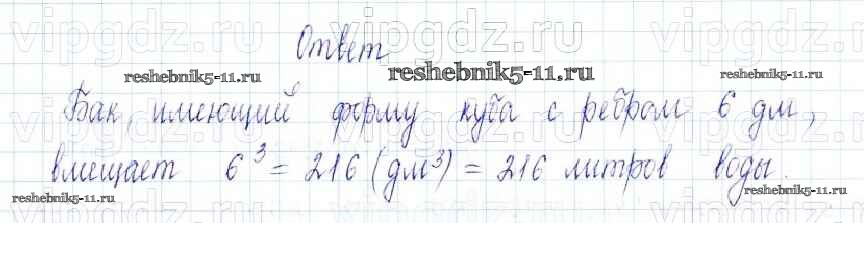 vipgdz.ru vipgdz.ru vipgdz.ru
Ответ
reshebnik5-11.ru reshebnik5-11.ru reshebnik5-11.ru
Бак, имеющий форму куба с ребром 6 дм,
вмещает 6³ = 216 (дм³) = 216 литров воды.
reshebnik5-11.ru reshebnik5-11.ru
vipgdz.ru vipgdz.ru vipgdz.ru